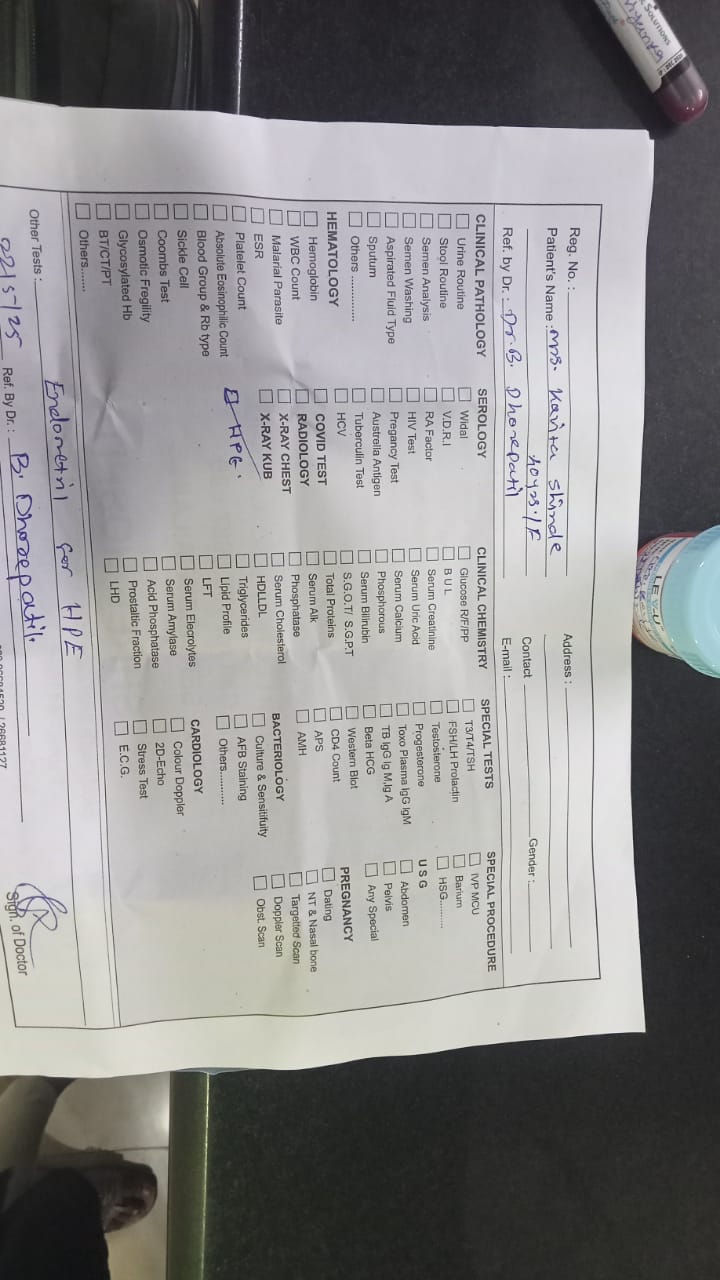 Reg. No. :
Patient's Name : Mrs. Kavita Shinde
40yrs/F
Ref. by Dr. : Dr. B. Dhonepatil
Address :
Contact
Gender :
E-mail :
CLINICAL PATHOLOGY
Urine Routine
Stool Routine
Semen Analysis
Semen Washing
Aspirated Fluid Type
Sputum
Others .............
HEMATOLOGY
Hemoglobin
WBC Count
Malarial Parasite
ESR
Platelet Count
Absolute Eosinophilic Count
Blood Group & Rb type
Sickle Cell
Coombs Test
Osmotic Fregility
Glycosylated Hb
BT/CT/PT
Others........
SEROLOGY
Widal
V.D.R.I
RA Factor
HIV Test
Pregancy Test
Australia Antigen
Tuberculin Test
HCV
COVID TEST
RADIOLOGY
X-RAY CHEST
X-RAY KUB
HPE.
CLINICAL CHEMISTRY
Glucose R/F/PP
B U L
Serum Creatinine
Serum Uric Acid
Serum Calcium
Phosphorous
Serum Bilirubin
S.G.O.T/ S.G.P.T
Total Proteins
Serum Alk
Phosphatase
Serum Cholesterol
HDLLDL
Triglycerides
Lipid Profile
LFT
Serum Elecrolytes
Serum Amylase
Acid Phosphatase
Prostaltic Fraction
LHD
SPECIAL TESTS
T3/T4/TSH
FSH/LH Prolactin
Testosterone
Progesterone
Toxo Plasma IgG IgM
TB IgG Ig M,Ig A
Beta HCG
Western Blot
CD4 Count
APS
AMH
BACTERIOLOGY
Culture & Sensitifuity
AFB Staining
Others...........
CARDIOLOGY
Colour Doppler
2D-Echo
Stress Test
E.C.G.
SPECIAL PROCEDURE
IVP MCU
Barium
HSG..........
U S G
Abdomen
Pelvis
Any Special
PREGNANCY
Dating
NT & Nasal bone
Targetted Scan
Doppler Scan
Obst. Scan
Other Tests :
Endometril for HPE
22/5/25
Ref. By Dr. : B. Dhonepatil.
Sign. of Doctor
26681127
SOLUTIONS